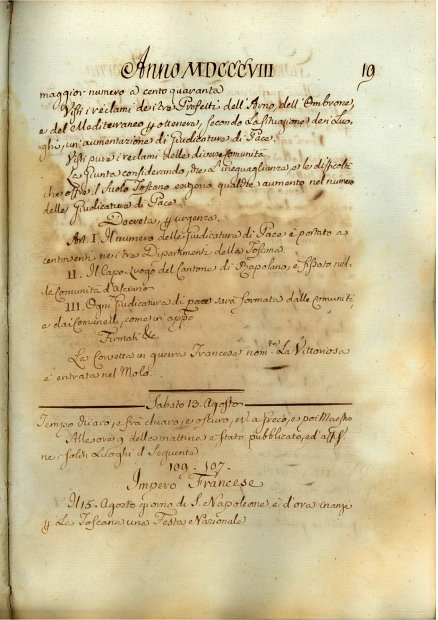 Anno MDCCCVIII 19
maggior numero a cento quaranta
Visti i reclami de i tre Prefetti dell'Arno, dell'Ombrone,
e del Mediterraneo p ottenere, secondo la situazione dei Luo-
ghi, un'aumentazione di Giudicatura di Pace.
Visti pure i reclami delle diverse Comunità.
La Giunta considerando, che l'inequaglianza, e le difficoltà
che offre il Suolo Toscano exigono qualche aumento nel numero
delle Giudicature di Pace.
Decreta, p urgenza.
Art. I. Il numero delle Giudicatura di Pace è portato a
cento venti nei tre Dipartimenti della Toscana
II. Il Capo-Luogo del Cantone di Rapolano, è fissato nel-
la Comunità d'Asciano
III. Ogni Giudicatura di pace sarà formata dalle Comunità,
e dai Comunelli, come in app.
Firmati &c.
La Corvetta in guerra Francesa nom. La Vittoriosa
è entrata nel Molo.
Sabato 13. Agosto
Tempo chiaro, e frà chiaro, e oscuro, v. a Greco, e poi Maestro
Alle ore 9 delle mattine è stato pubblicato, ed aff.
ne soliti Luoghi il Sequente
109. 107.
Impero Francese
Il 15. Agosto giorno di S. Napoleone è d'ora inanzi
p La Toscana una Festa Nazionale